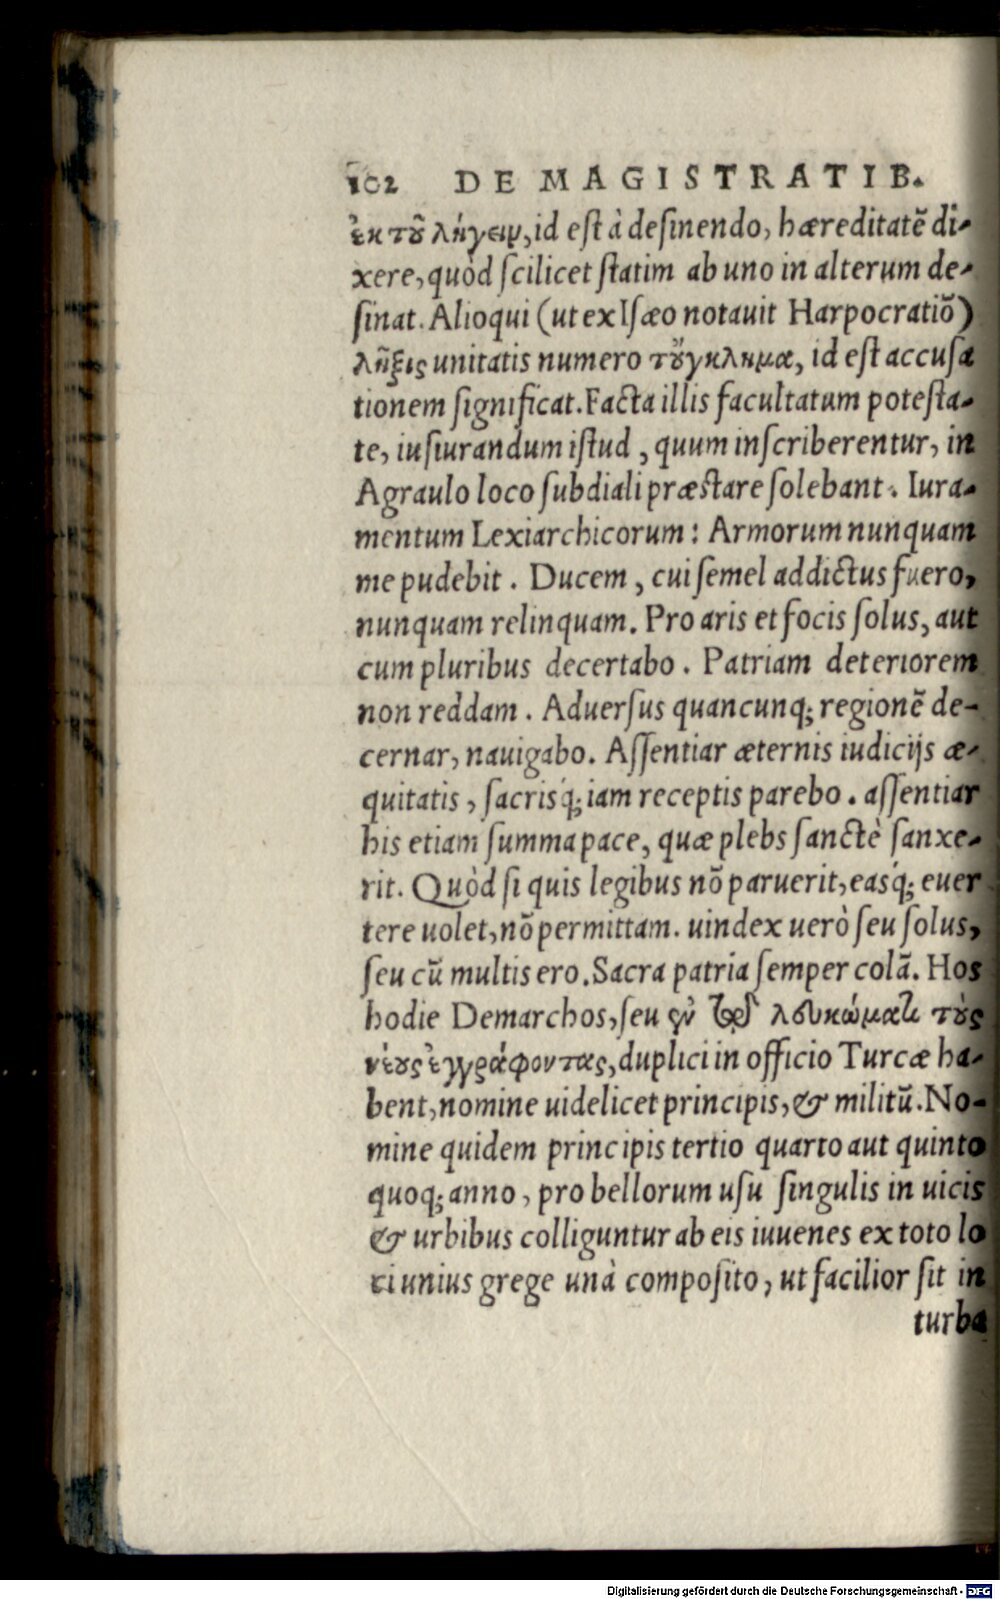 102 DE MAGISTRATIB.
ἐκ τοῦ λήγειν, id est à desinendo, hæreditatẽ di-
xere, quòd scilicet statim ab uno in alterum de-
sinat. Alioqui (ut ex Isæo notauit Harpocratiõ)
λῆξις unitatis numero τοὔγκλημα, id est accusa
tionem significat. Facta illis facultatum potesta-
te, iusiurandum istud, quum inscriberentur, in
Agraulo loco subdiali præstare solebant. Iura-
mentum Lexiarchicorum: Armorum nunquam
me pudebit. Ducem, cui semel addictus fuero,
nunquam relinquam. Pro aris et focis solus, aut
cum pluribus decertabo. Patriam deteriorem
non reddam. Aduersus quancunq; regionẽ de-
cernar, nauigabo. Assentiar æternis iudicijs æ-
quitatis, sacrisq́; iam receptis parebo. assentiar
his etiam summa pace, quæ plebs sanctè sanxe-
rit. Quòd si quis legibus nõ paruerit, easq́; euer
tere uolet, nõ permittam. uindex uerò seu solus,
seu cũ multis ero. Sacra patria semper colã. Hos
hodie Demarchos, seu ἐν τῷ λευκώματι τοὺς
νέους ἐγγράφοντας, duplici in officio Turcæ ha-
bent, nomine uidelicet principis, & militũ. No-
mine quidem principis tertio quarto aut quinto
quoq; anno, pro bellorum usu singulis in uicis
& urbibus colliguntur ab eis iuuenes ex toto lo
ci unius grege unà composito, ut facilior sit in
turba
Digitalisierung gefördert durch die Deutsche Forschungsgemeinschaft - DFG